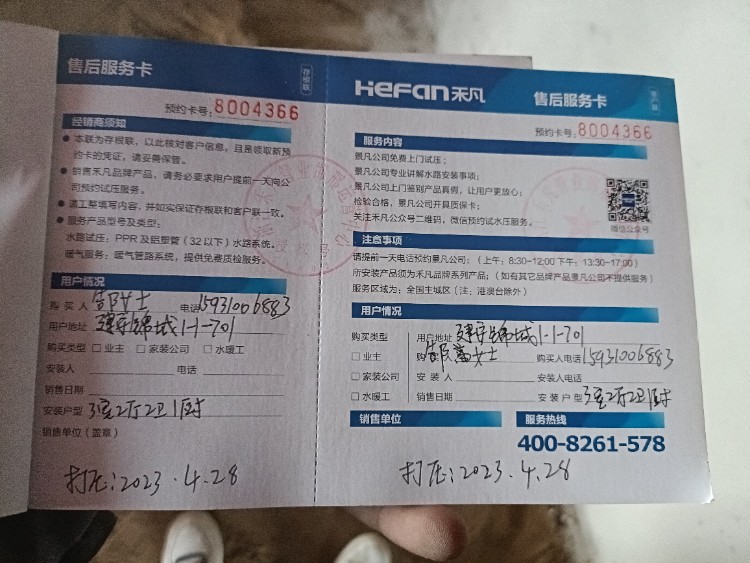 售后服务卡
存根联
预约卡号:8004366
经销商须知
● 本联为存根联,以此核对客户信息,且是领取新预
约卡的凭证,请妥善保管。
● 销售禾凡品牌产品,请务必要求用户提前一天向公
司预约试压服务。
● 请工整填写内容,并如实保证存根联和客户联一致。
● 服务产品型号及类型:
水路试压:PPR 及铝塑管(32以下)水路系统。
暖气服务:暖气管路系统,提供免费质检服务。
用户情况
购 买 人 女士 电话15931006883
用户地址 锦城1-1-701
购买类型 □ 业主 □ 家装公司 □ 水暖工
安装人 电话
销售日期
安装户型 3室2厅2卫1厨
销售单位(盖章)
打压:2023.4.28
HeFan禾凡
售后服务卡
客户联
预约卡号:8004366
服务内容
景凡公司免费上门试压;
景凡公司专业讲解水路安装事项;
景凡公司上门鉴别产品真假,让用户更放心;
检验合格,景凡公司开具质保卡;
关注禾凡公众号二维码,微信预约试水压服务。
微信公众号
注意事项
请提前一天电话预约景凡公司:(上午:8:30-12:00下午:13:30-17:00)
所安装产品须为禾凡品牌系列产品;(如有其它品牌产品景凡公司不提供服务)
服务区域为:全国主城区(注:港澳台除外)
用户情况
购买类型 用户地址 锦城1-1-701
□ 业主 购 女士 购买人电话15931006883
□ 家装公司 安 装 人 安装人电话
□ 水暖工 销售日期 安 装 户 型 3室2厅2卫1厨
销售单位 服务热线
400-8261-578
打压:2023.4.28